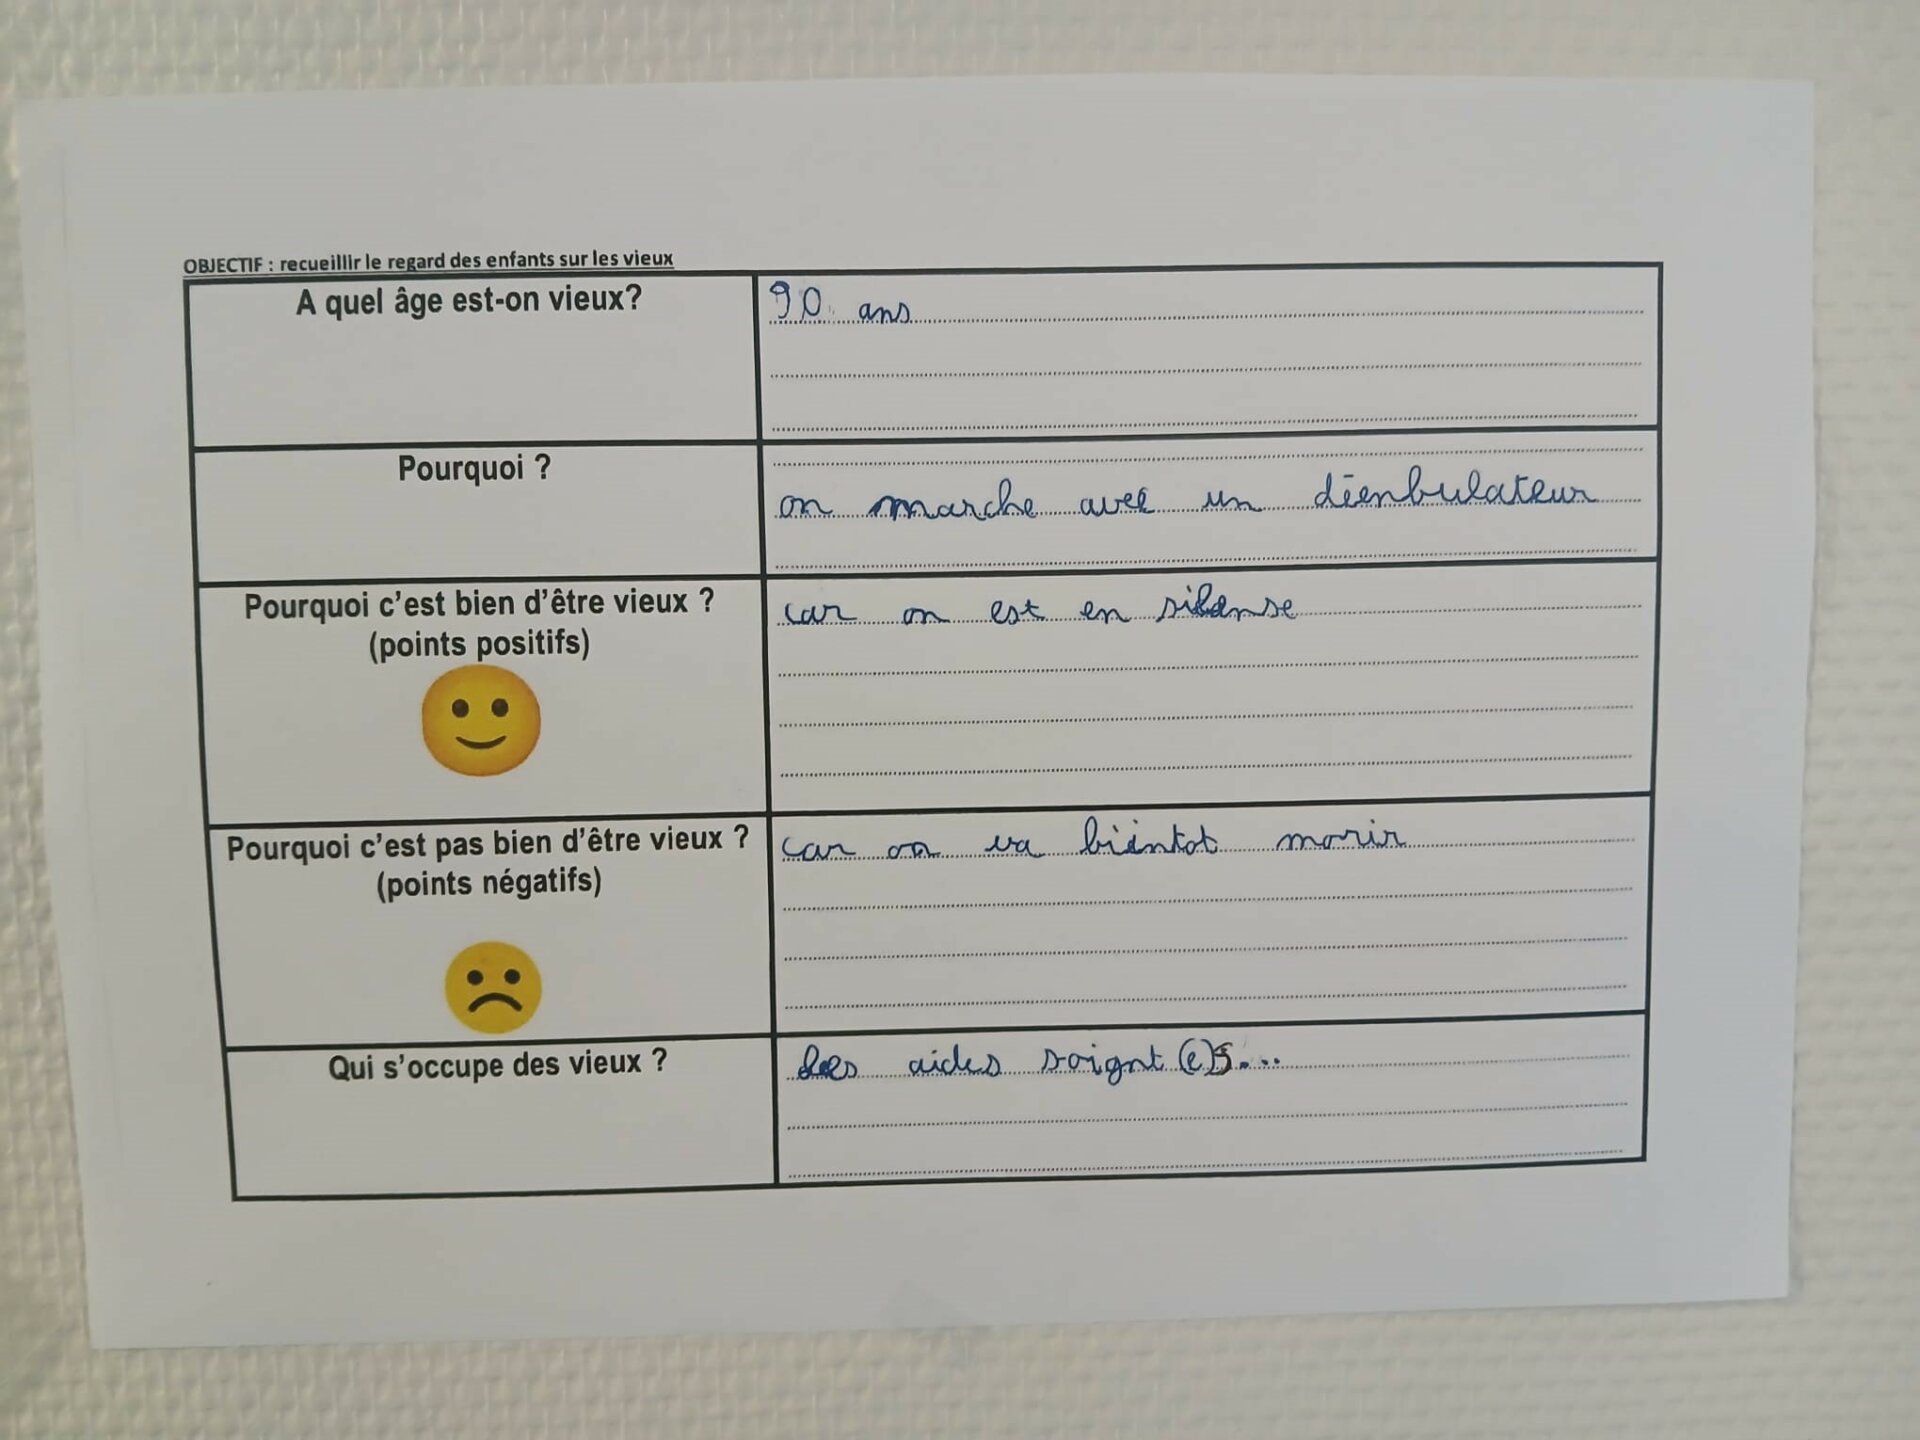 OBJECTIF : recueillir le regard des enfants sur les vieux
A quel âge est-on vieux?
90 ans
Pourquoi ?
on marche avec un déenbulateur
Pourquoi c'est bien d'être vieux ?
(points positifs)
car on est en silense
Pourquoi c'est pas bien d'être vieux ?
(points négatifs)
car on va bientot morir
Qui s'occupe des vieux ?
les aides soignt(e)s...